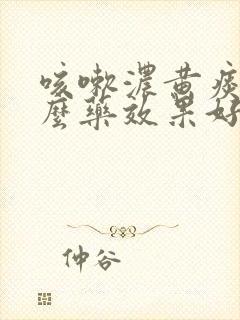 咳嗽濃黃痰
麼藥效果好
仲谷